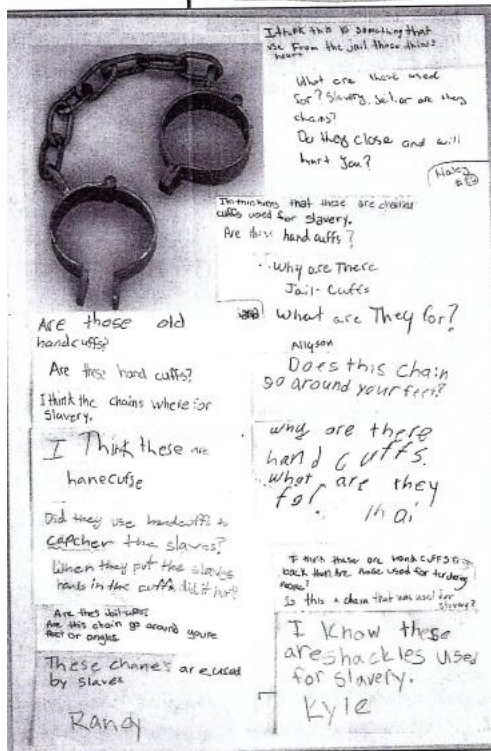 I think this is something that
use from the jail those things
hurt
What are these used
for? Slavery, jail, or are they
chains?
Do they close and will
hurt you?
Haley
I'm thinking that these are chained
cuffs used for slavery.
Are these hand cuffs?
Why are There
Jail-Cuffs
What are They for?
Allyson
Does this chain
go around your feet?
why are there
hand cuffs.
what are they
for.
Are those old
handcuffs?
Are these hand cuffs?
I think the chains where for
slavery.
I Think these are
hanecufse
Did they use handcuffs to
capcher the slaves?
When they put the slaves
hands in the cuffs did it hurt?
Are thes Jail-cuffs?
Are this chain go around youre
feet or angles
These chanes are used
by slaves
Randy
I think these are hand cuffs
back then. Are these used for
Is this a chain that was used for
slavery?
I know these
are shackles used
for slavery.
Kyle